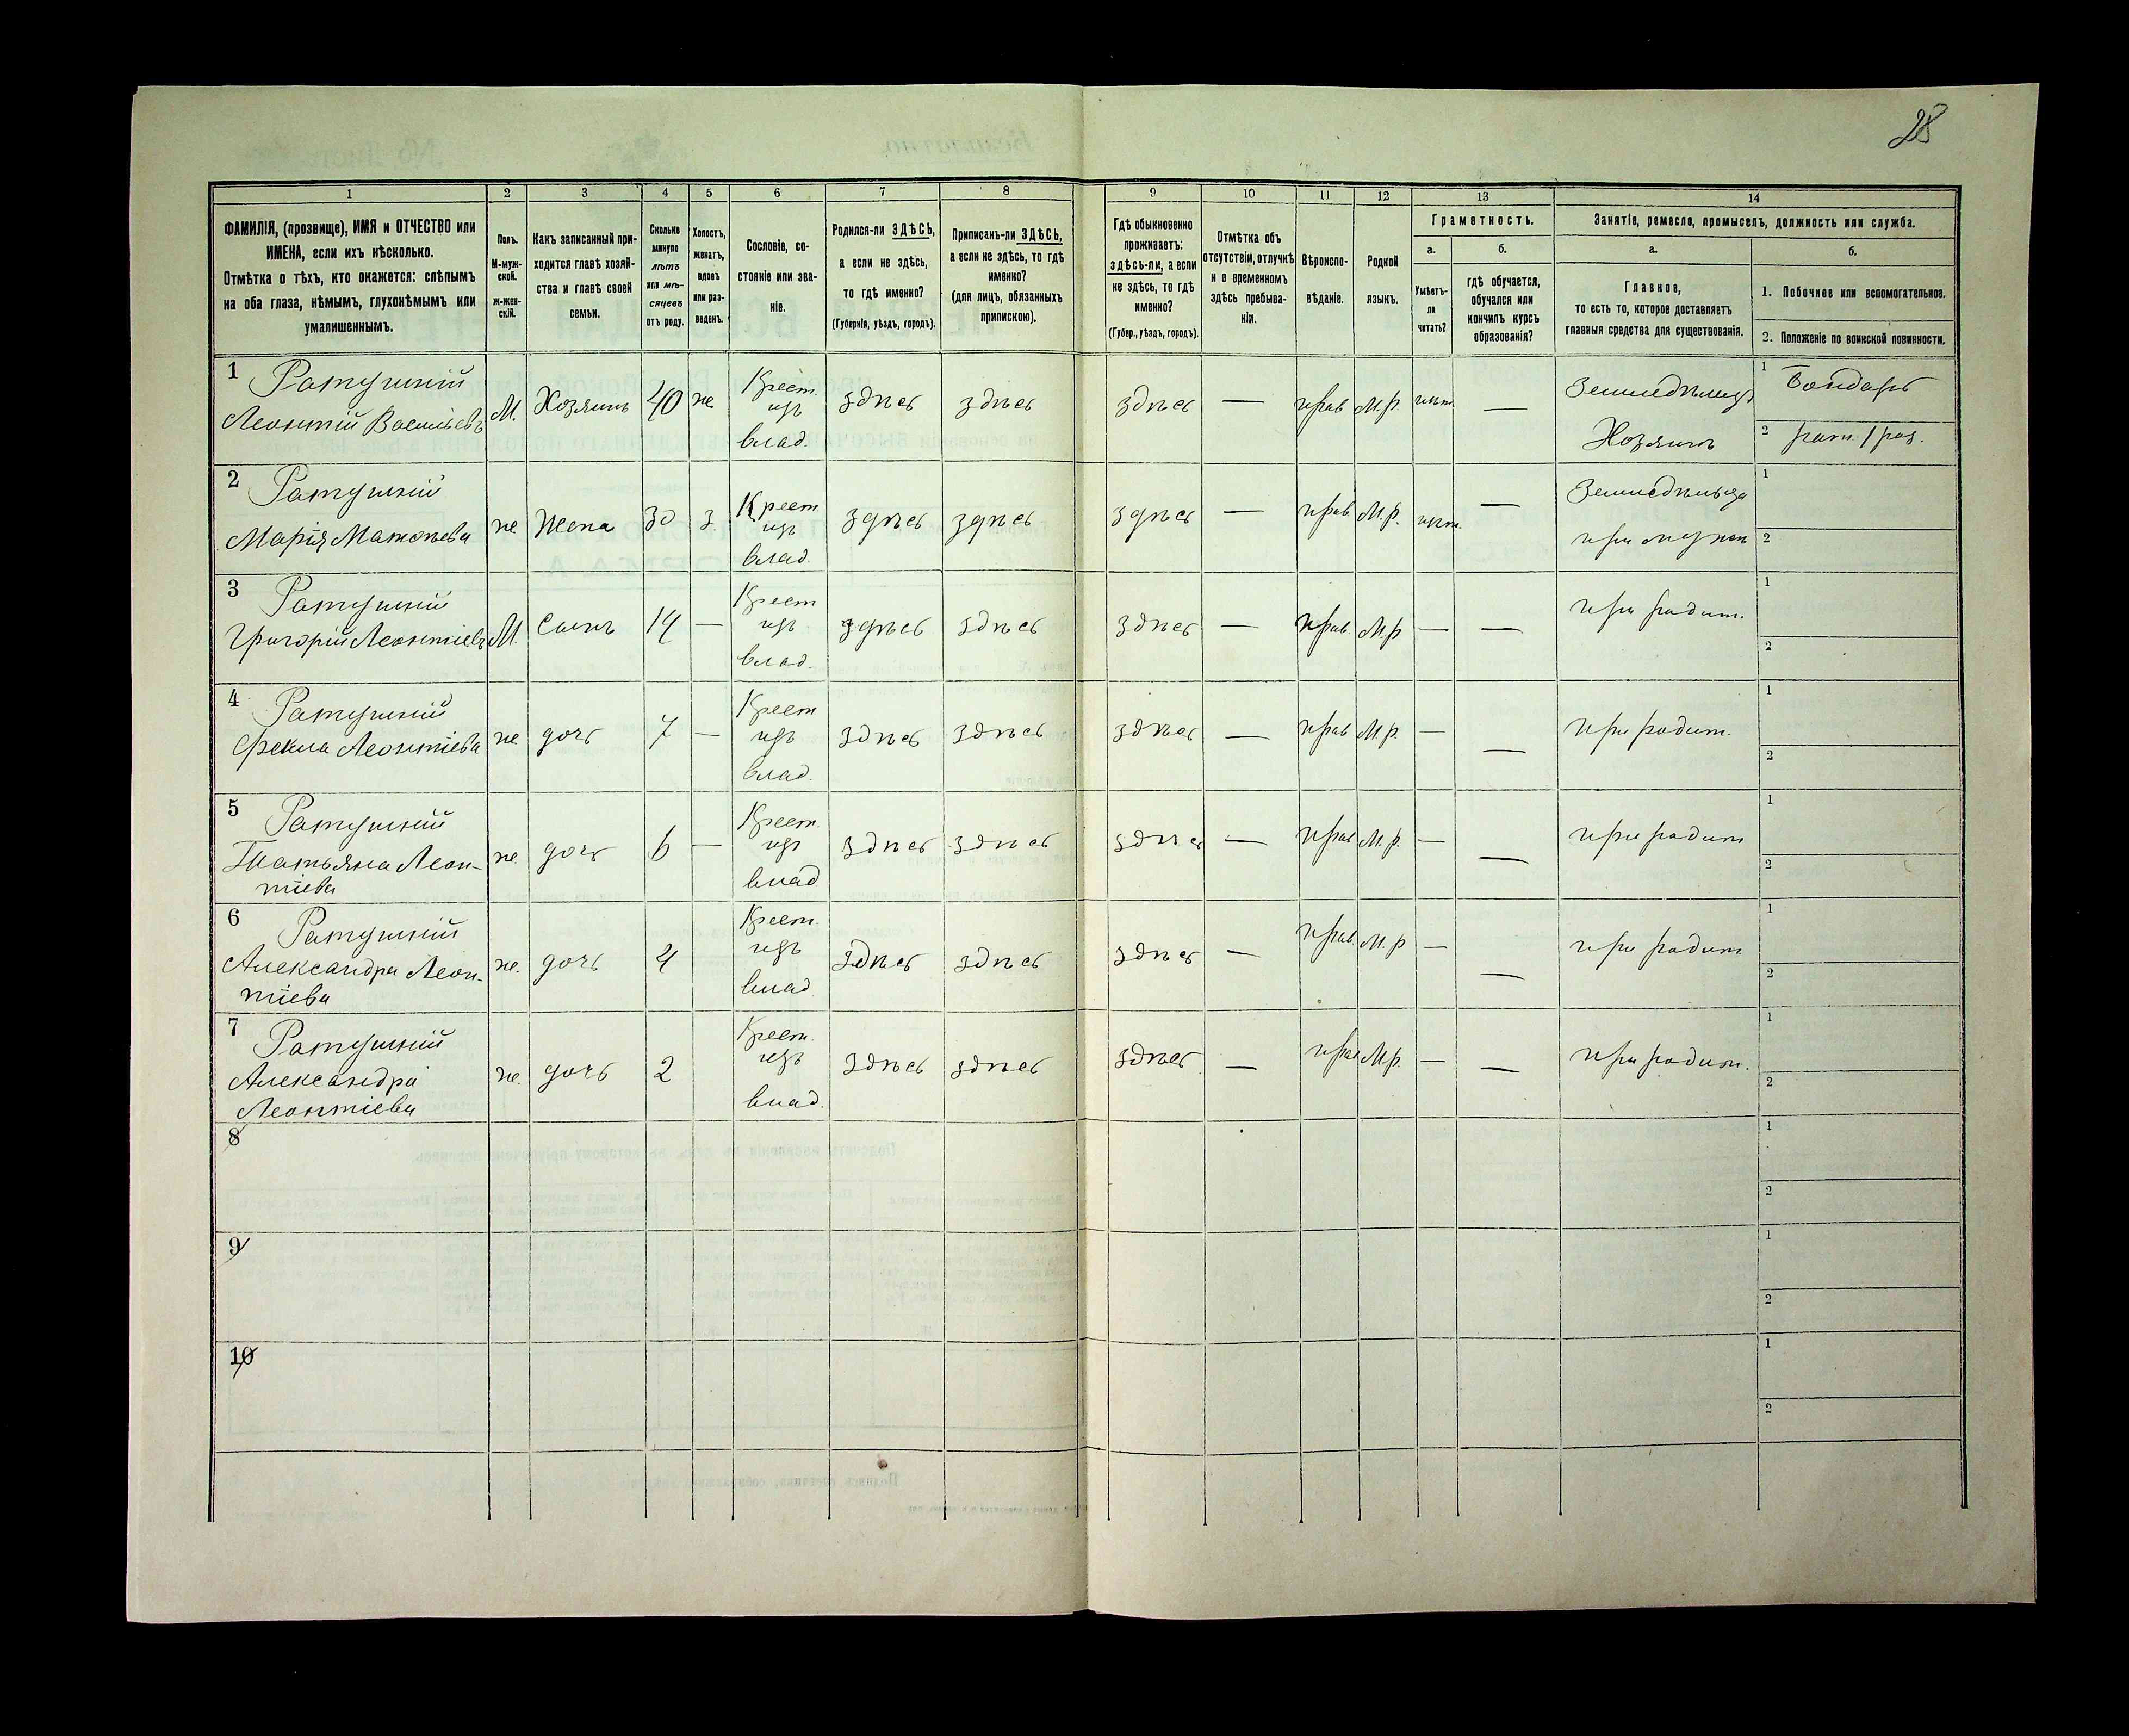 28
1 2 3 4 5 6 7 8 9 10 11 12 13 14
ФАМИЛІЯ, (прозвище), ИМЯ и ОТЧЕСТВО или
ИМЕНА, если ихъ нѣсколько.
Отмѣтка о тѣхъ, кто окажется: слѣпымъ
на оба глаза, нѣмымъ, глухонѣмымъ или
умалишеннымъ.
Полъ.
М-муж-
ской.
Ж-жен-
скій.
Какъ записанный при-
ходится главѣ хозяй-
ства и главѣ своей
семьи.
Сколько
минуло
лѣтъ
или мѣ-
сяцевъ
отъ роду.
Холостъ,
женатъ,
вдовъ
или раз-
веденъ.
Сословіе, со-
стояніе или зва-
ніе.
Родился-ли ЗДѢСЬ,
а если не здѣсь,
то гдѣ именно?
(Губернія, уѣздъ, городъ).
Приписанъ-ли ЗДѢСЬ,
а если не здѣсь, то гдѣ
именно?
(для лицъ, обязанныхъ
припискою).
Гдѣ обыкновенно
проживаетъ:
здѣсь-ли, а если
не здѣсь, то гдѣ
именно?
(Губер., уѣздъ, городъ).
Отмѣтка объ
отсутствіи, отлучкѣ
и о временномъ
здѣсь пребыва-
ніи.
Вѣроиспо-
вѣданіе.
Родной
языкъ.
Грамотность.
а.
Умѣетъ-
ли
читать?
б.
гдѣ обучается,
обучался или
кончилъ курсъ
образованія?
Занятіе, ремесло, промыселъ, должность или служба.
а.
Главное,
то есть то, которое доставляетъ
главныя средства для существованія.
б.
1. Побочное или вспомогательное.
2. Положеніе по воинской повинности.
1 Ратушній
Леонтій Васильевъ М. Хозяинъ 40 же Крест. изъ влад. здѣсь здѣсь здѣсь — прав М.р. нѣт. — Земледѣлецъ
Хозяинъ
1 Бондарь
2 ратн. 1 раз.
2 Ратушній
Марія Матѳѣева же Жена 30 з. Крест изъ влад. здѣсь здѣсь здѣсь — прав М.р. нѣт. — Земледѣльца
при мужѣ
1
2
3 Ратушній
Григорій Леонтіевъ М. Сынъ 14 — Крест изъ влад. здѣсь здѣсь здѣсь — прав. М.р — — при родит.
1
2
4 Ратушній
Фекла Леонтіева же дочь 7 — Крест изъ влад. здѣсь здѣсь здѣсь — прав М.р. — — при родит.
1
2
5 Ратушній
Татьяна Леон-
тіева же. дочь 6 — Крест. изъ влад здѣсь здѣсь здѣсь — прав М.р. — — при родит
1
2
6 Ратушній
Александра Леон-
тіева же. дочь 4 Крест. изъ влад здѣсь здѣсь здѣсь — прав. М.р — — при родит
1
2
7 Ратушній
Александра
Леонтіева же. дочь 2 Крест. изъ влад. здѣсь здѣсь здѣсь — прав М.р. — — при родит.
1
2
8
1
2
9
1
2
10
1
2